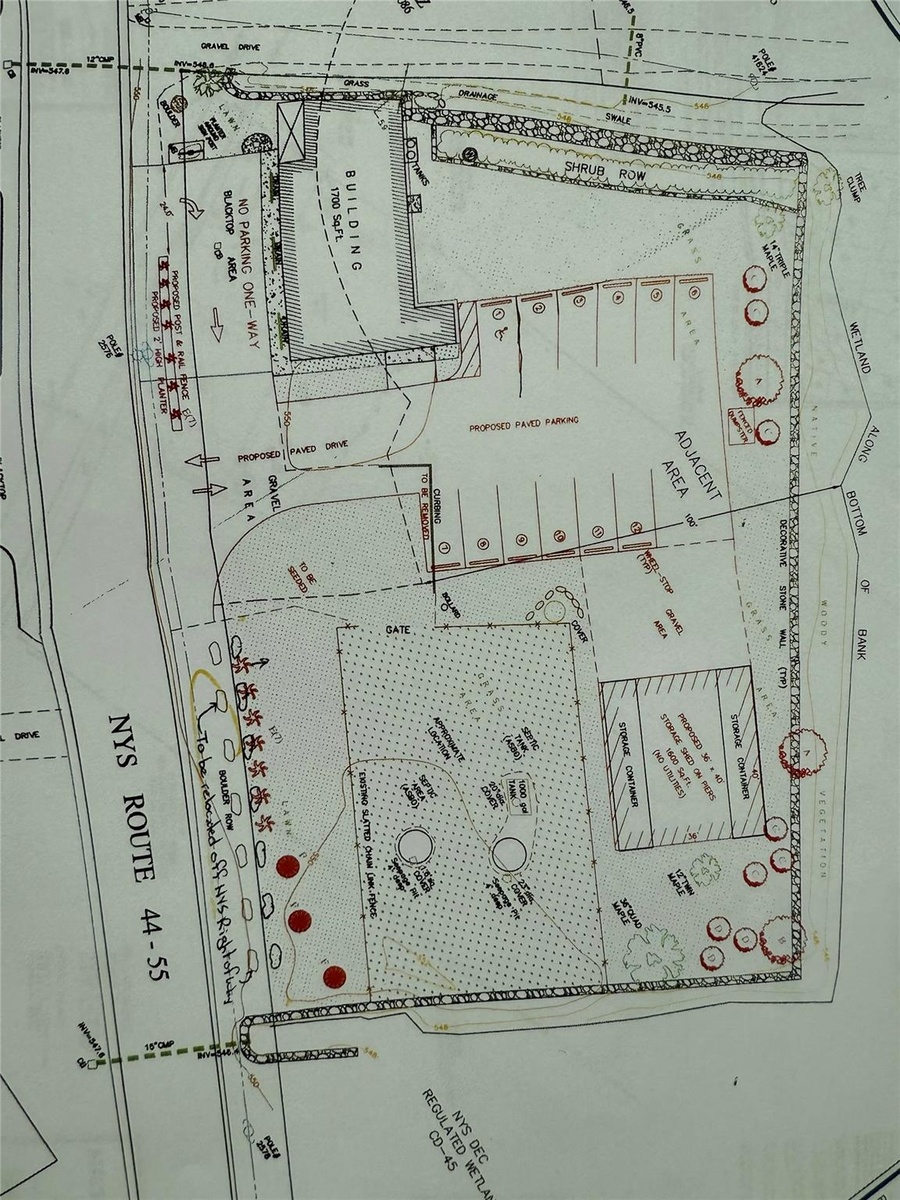 GRAVEL DRIVE
12"CMP
INV=547.6
INV=546.6
GRASS
DRAINAGE
SWALE
8"PVC
INV=545.5
548
POLE#
41624
BOULDER
LAWN
550
SHRUB ROW
548
TREE
CLUMP
TANKS
BUILDING
1700 Sq.Ft.
NO PARKING ONE-WAY
BLACKTOP
AREA
14" TRIPLE
MAPLE
GRASS
AREA
PROPOSED POST & RAIL FENCE
PROPOSED 2' HIGH PLANTER
POLE#
2576
1
2
3
4
5
6
PROPOSED PAVED PARKING
PROPOSED PAVED DRIVE
550
GRAVEL
AREA
ADJACENT
AREA
100'
FENCED
DUMPSTER
WETLAND
ALONG
BOTTOM
OF
BANK
NATIVE
WOODY
VEGETATION
DECORATIVE STONE WALL (TYP)
CURBING
TO BE REMOVED
7
8
9
10
11
12
WHEEL-STOP
(TYP)
GRAVEL
AREA
GRASS
AREA
TO BE
SEEDED
BOLLARD
COVER
GATE
GRASS
AREA
APPROXIMATE
LOCATION
SEPTIC
TANK
(ASBO)
SEPTIC
AREA
(ASBO)
1000 gal
TANK
20"dia.
COVER
COVER
Sewage Pit
COVER
Sewage Pit
EXISTING SLATTED CHAIN LINK FENCE
STORAGE CONTAINER
PROPOSED 36' x 40'
STORAGE SHED ON PIERS
1600 Sq.Ft.
(NO UTILITIES)
STORAGE CONTAINER
40'
36'
12" TWIN
MAPLE
36" QUAD
MAPLE
BOULDER ROW
LAWN
To be relocated off NYS Right of way
NYS ROUTE 44-55
DRIVE
BLACKTOP
INV=547.6
CB
15"CMP
INV=546
550
548
548
POLE#
2576
NYS DEC
REGULATED WETLAN
CD-45